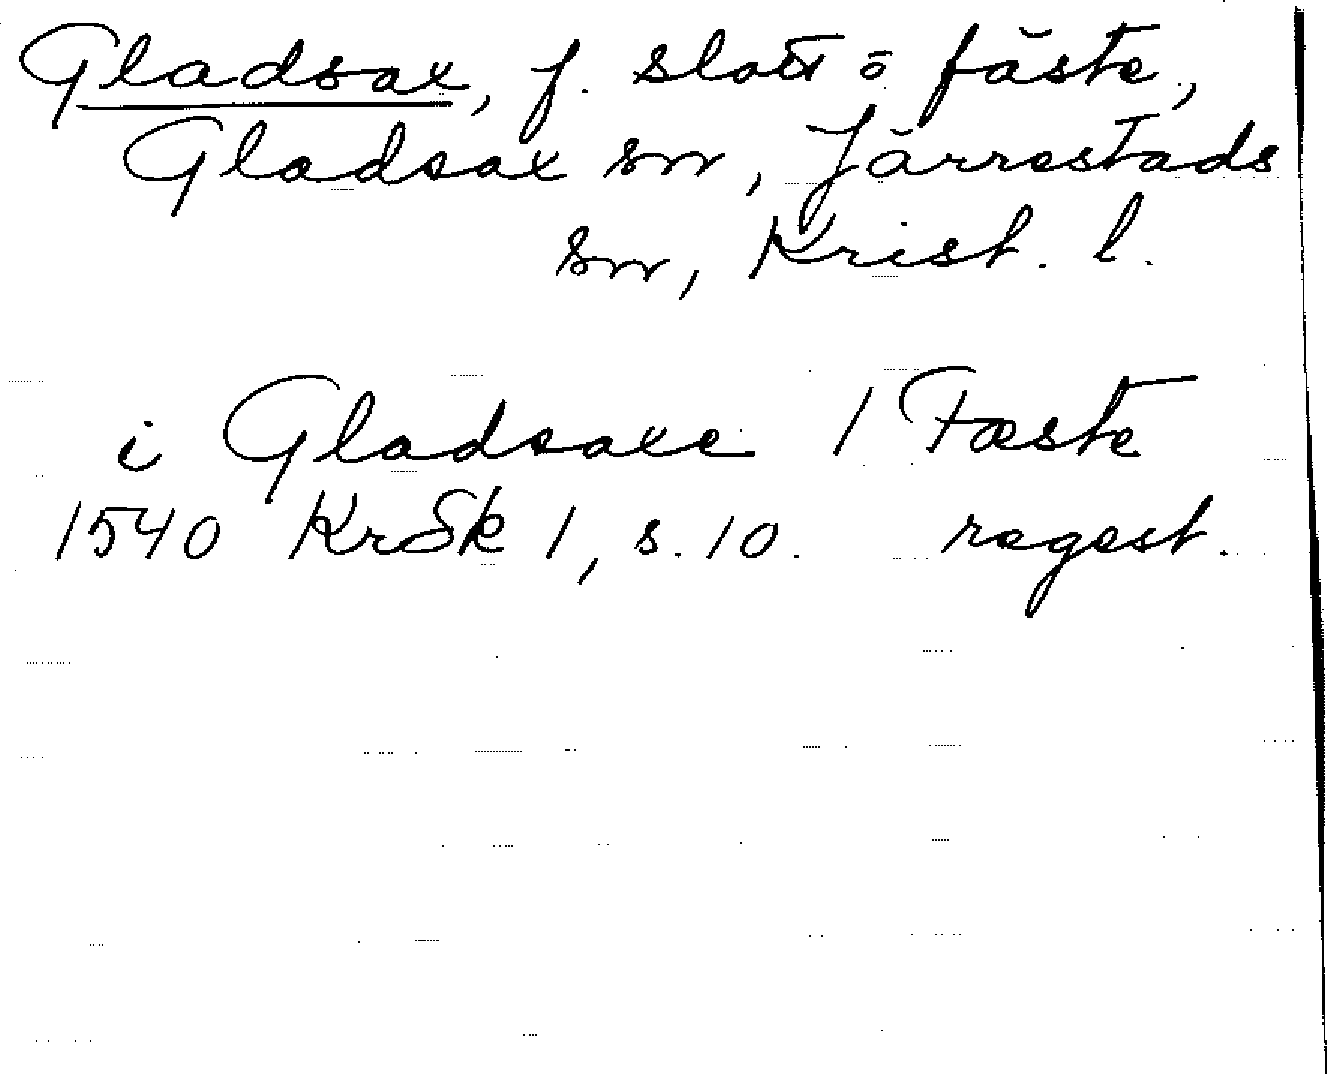 Gladsax, f. slott o fäste,
Gladsax sn, Järrestads
sn, Krist. l.
i Gladsaxe 1 Fæste
1540 KrSk 1, s. 10. regest.